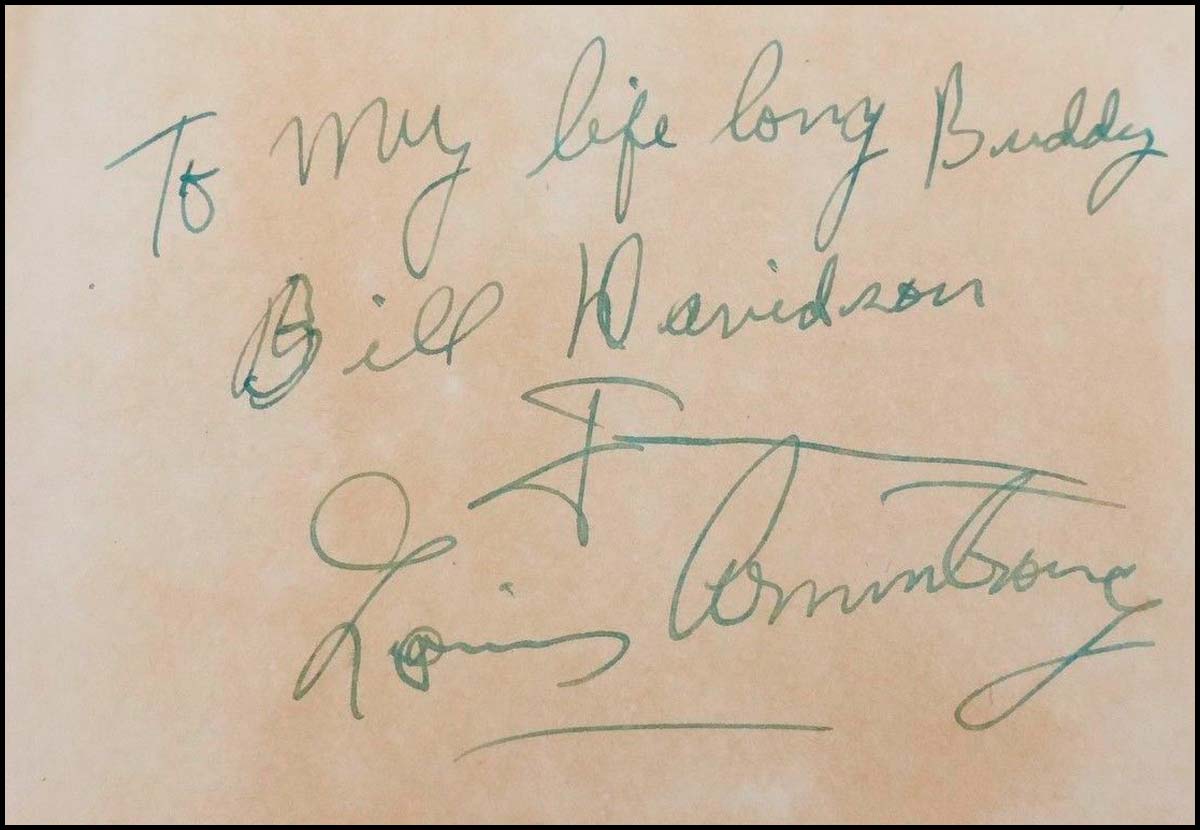 To My life long Buddy
Bill Davidson
From
Louis Armstrong